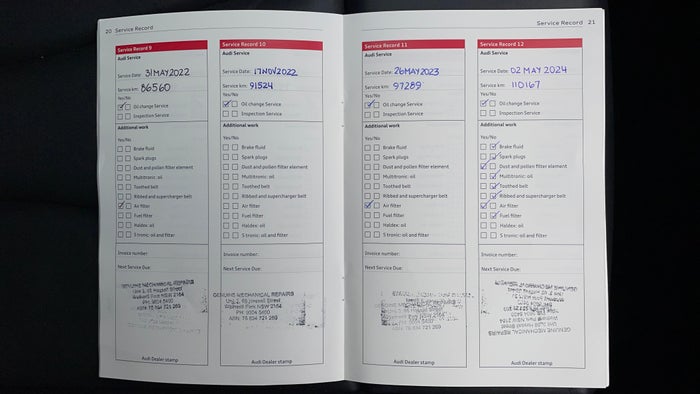 20 Service Record
Service Record 9
Audi Service
Service Date: 31 MAY 2022
Service km: 86560
Yes/No
Oil change Service
Inspection Service
Additional work
Yes/No
Brake fluid
Spark plugs
Dust and pollen filter element
Multitronic: oil
Toothed belt
Ribbed and supercharger belt
Air filter
Fuel filter
Haldex: oil
S tronic: oil and filter
Invoice number:
Next Service Due:
GENUINE MECHANICAL REPAIRS
NSW 2164
PH: 9604 5400
ABN: 75 634 721 269
Audi Dealer stamp
Service Record 10
Audi Service
Service Date: 17 NOV 2022
Service km: 91524
Yes/No
Oil change Service
Inspection Service
Additional work
Yes/No
Brake fluid
Spark plugs
Dust and pollen filter element
Multitronic: oil
Toothed belt
Ribbed and supercharger belt
Air filter
Fuel filter
Haldex: oil
S tronic: oil and filter
Invoice number:
Next Service Due:
GENUINE MECHANICAL REPAIRS
NSW 2164
ABN: 75 634 721 269
Audi Dealer stamp
Service Record 21
Service Record 11
Audi Service
Service Date: 26 MAY 2023
Service km: 97289
Yes/No
Oil change Service
Inspection Service
Additional work
Yes/No
Brake fluid
Spark plugs
Dust and pollen filter element
Multitronic: oil
Toothed belt
Ribbed and supercharger belt
Air filter
Fuel filter
Haldex: oil
S tronic: oil and filter
Invoice number:
Next Service Due:
Audi Dealer stamp
Service Record 12
Audi Service
Service Date: 02 MAY 2024
Service km: 110167
Yes/No
Oil change Service
Inspection Service
Additional work
Yes/No
Brake fluid
Spark plugs
Dust and pollen filter element
Multitronic: oil
Toothed belt
Ribbed and supercharger belt
Air filter
Fuel filter
Haldex: oil
S tronic: oil and filter
Invoice number:
Next Service Due:
GENUINE MECHANICAL REPAIRS
Audi Dealer stamp